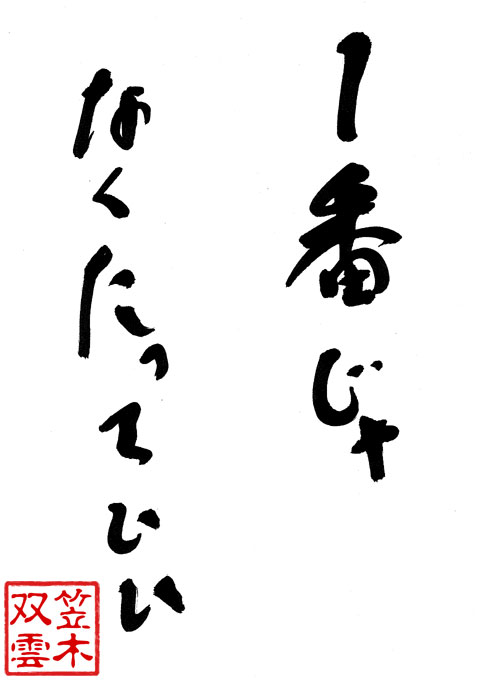 1番じゃ
なくたっていい
笠木
双雲